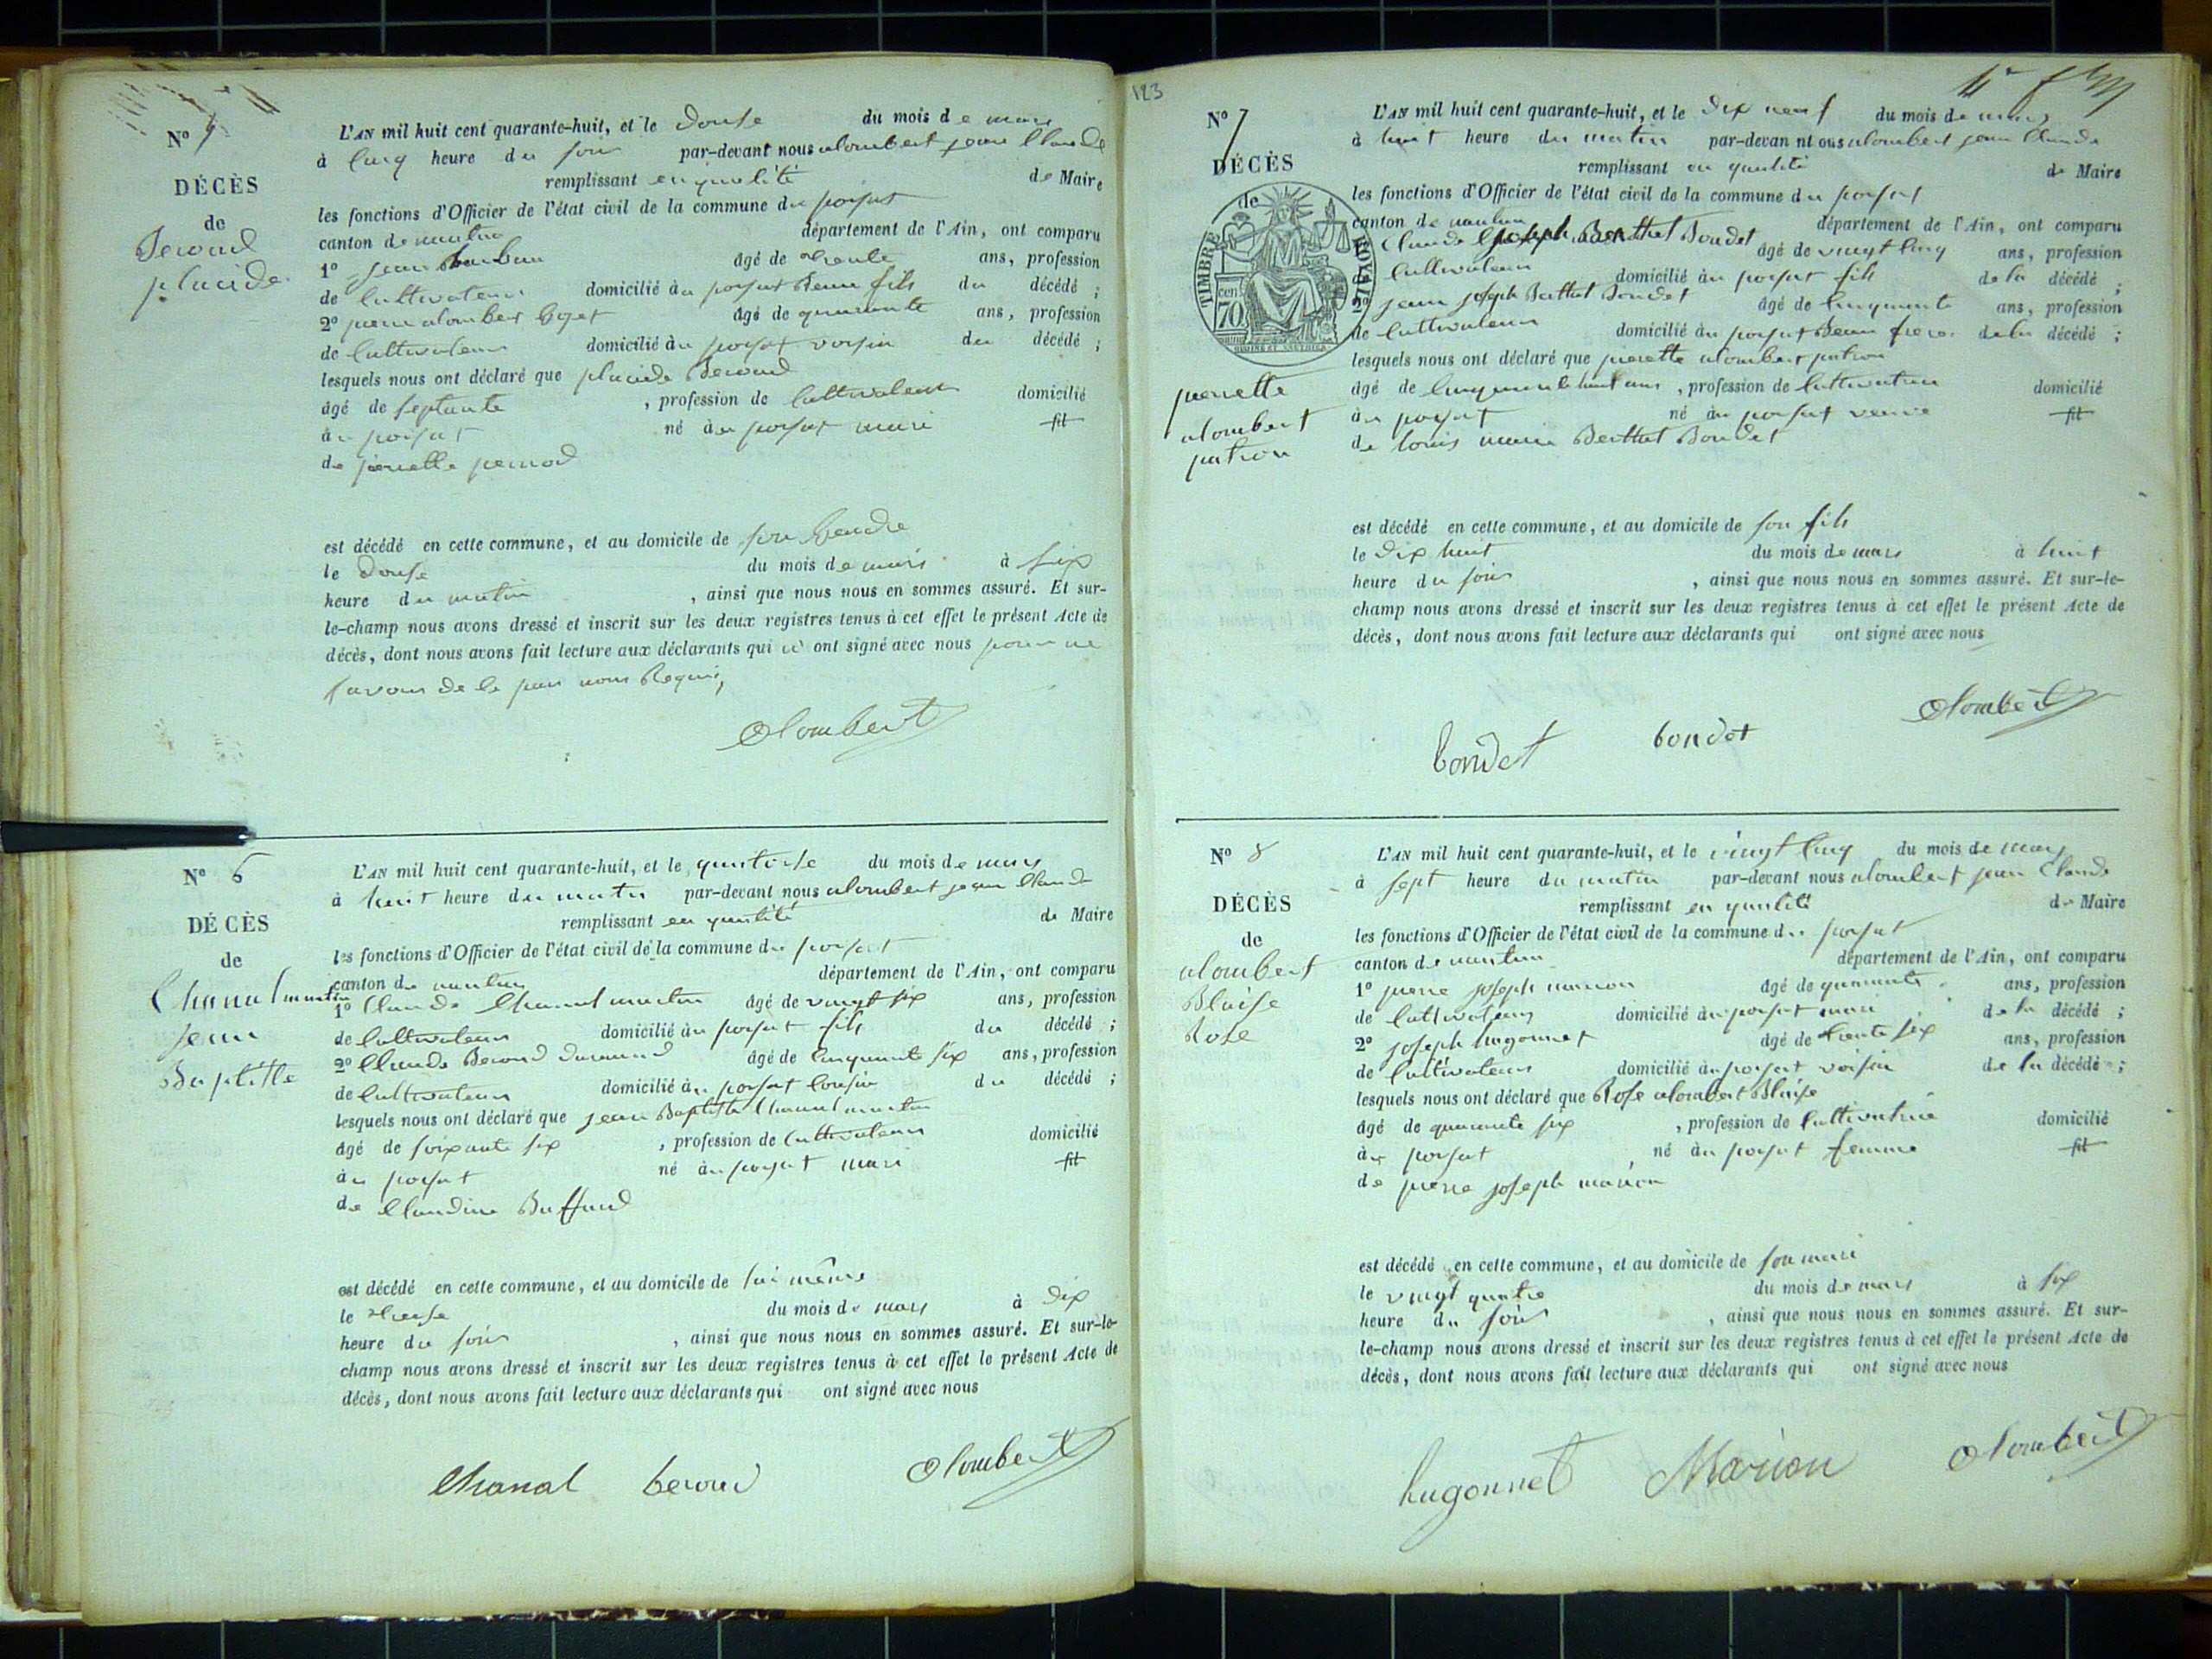 N° 5
DÉCÈS
de
Beroud
placide
L'AN mil huit cent quarante-huit, et le douse du mois de mars
à cinq heure du soir par-devant nous alombert jean Claude
remplissant en qualité de Maire
les fonctions d'Officier de l'état civil de la commune du poisat
canton de nantua département de l'Ain, ont comparu
1° jean âgé de trente ans, profession
de Cultivateur domicilié au poisat Beau fils du décédé ;
2° pierre alombert Goget âgé de quarante ans, profession
de Cultivateur domicilié au poisat voisin du décédé ;
lesquels nous ont déclaré que placide Beroud
âgé de septante , profession de Cultivateur domicilié
au poisat né au poisat mari fil
de pierrette pernod
est décédé en cette commune, et au domicile de son Gendre
le douse du mois de mars à six
heure du matin , ainsi que nous nous en sommes assuré. Et sur-
le-champ nous avons dressé et inscrit sur les deux registres tenus à cet effet le présent Acte de
décès, dont nous avons fait lecture aux déclarants qui n' ont signé avec nous pour ne
savoir de le par nous Requis,
Alombert
N° 6
DÉCÈS
de
Chanal martin
jean
Baptiste
L'AN mil huit cent quarante-huit, et le quatorse du mois de mars
à huit heure du matin par-devant nous alombert jean Claude
remplissant en qualité de Maire
les fonctions d'Officier de l'état civil de la commune du poisat
canton de nantua département de l'Ain, ont comparu
1° Claude Chanal martin âgé de vingt six ans, profession
de Cultivateur domicilié au poisat fils du décédé ;
2° Claude Beroud âgé de Cinquante six ans, profession
de Cultivateur domicilié au poisat Cousin du décédé ;
lesquels nous ont déclaré que jean Baptiste Chanal martin
âgé de soixante six , profession de Cultivateur domicilié
au poisat né au poisat mari fil
de Claudine Buffard
est décédé en cette commune, et au domicile de lui même
le treise du mois de mars à Dix
heure du soir , ainsi que nous nous en sommes assuré. Et sur-le-
champ nous avons dressé et inscrit sur les deux registres tenus à cet effet le présent Acte de
décès, dont nous avons fait lecture aux déclarants qui ont signé avec nous
Chanal beroud Alombert
123
N° 7
DÉCÈS
de
TIMBRE ROYAL
70 cent
pierrette
alombert
patron
L'AN mil huit cent quarante-huit, et le dix neuf du mois de mars
à huit heure du matin par-devant nous alombert jean Claude
remplissant en qualité de Maire
les fonctions d'Officier de l'état civil de la commune du poisat
canton de nantua département de l'Ain, ont comparu
Claude joseph Berthet Bondet âgé de vingt Cinq ans, profession
Cultivateur domicilié au poisat fils de la décédé ;
2° jean joseph Berthet Bondet âgé de Cinquante ans, profession
de Cultivateur domicilié au poisat Beau frere de la décédé ;
lesquels nous ont déclaré que pierette alombert patron
âgé de Cinquante huit ans , profession de Cultivatrice domicilié
au poisat né au poisat veuve fil
de louis marie Berthet Bondet
est décédé en cette commune, et au domicile de son fils
le dix huit du mois de mars à huit
heure du soir , ainsi que nous nous en sommes assuré. Et sur-le-
champ nous avons dressé et inscrit sur les deux registres tenus à cet effet le présent Acte de
décès, dont nous avons fait lecture aux déclarants qui ont signé avec nous
bondet bondet Alombert
N° 8
DÉCÈS
de
alombert
Blaise
Rose
L'AN mil huit cent quarante-huit, et le vingt Cinq du mois de mars
à sept heure du matin par-devant nous alombert jean Claude
remplissant en qualité de Maire
les fonctions d'Officier de l'état civil de la commune du poisat
canton de nantua département de l'Ain, ont comparu
1° pierre joseph marion âgé de quarante ans, profession
de Cultivateur domicilié au poisat mari de la décédé ;
2° joseph hugonnet âgé de trente six ans, profession
de Cultivateur domicilié au poisat voisin de la décédé ;
lesquels nous ont déclaré que Rose alombert Blaise
âgé de quarante six , profession de Cultivatrice domicilié
au poisat né au poisat femme fil
de pierre joseph marion
est décédé en cette commune, et au domicile de son mari
le vingt quatre du mois de mars à six
heure du soir , ainsi que nous nous en sommes assuré. Et sur-
le-champ nous avons dressé et inscrit sur les deux registres tenus à cet effet le présent Acte de
décès, dont nous avons fait lecture aux déclarants qui ont signé avec nous
hugonnet Marion Alombert